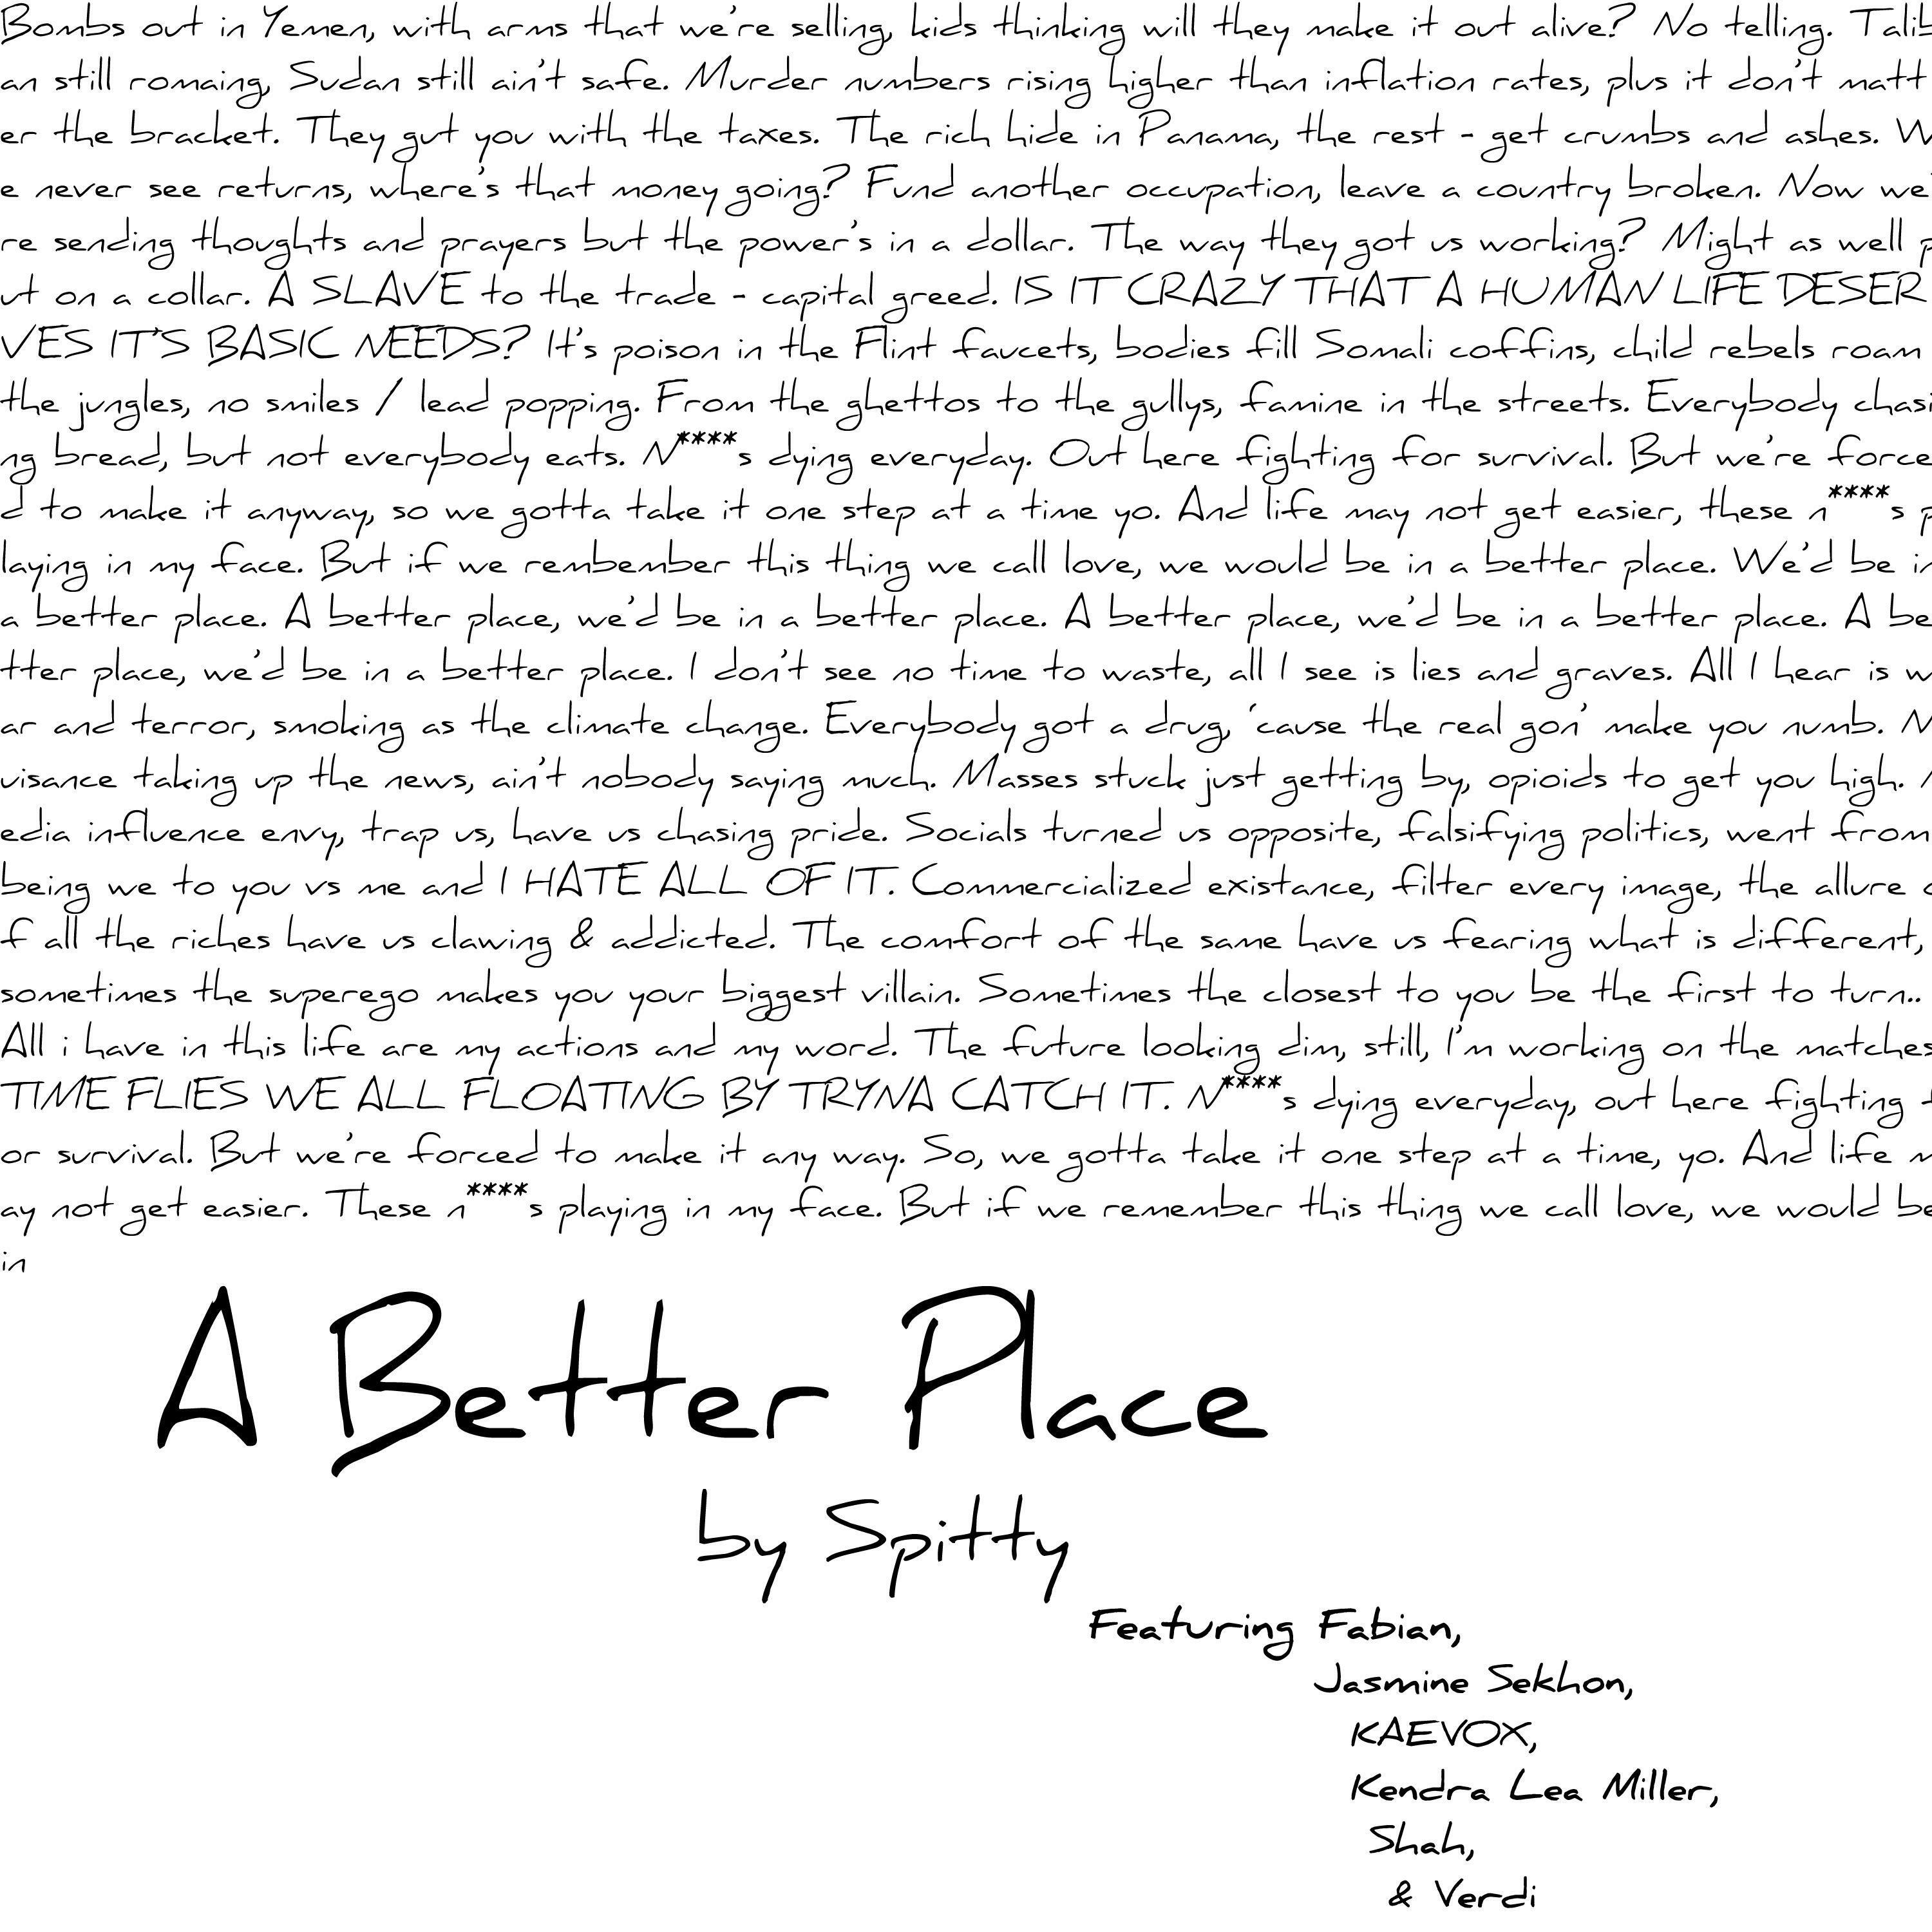 Bombs out in Yemen, with arms that we're selling, kids thinking will they make it out alive? No telling. Talib
an still romaing, Sudan still ain't safe. Murder numbers rising higher than inflation rates, plus it don't matt
er the bracket. They gut you with the taxes. The rich hide in Panama, the rest - get crumbs and ashes. W
e never see returns, where's that money going? Fund another occupation, leave a country broken. Now we'
re sending thoughts and prayers but the power's in a dollar. The way they got us working? Might as well p
ut on a collar. A SLAVE to the trade - capital greed. IS IT CRAZY THAT A HUMAN LIFE DESER
VES IT'S BASIC NEEDS? It's poison in the Flint faucets, bodies fill Somali coffins, child rebels roam
the jungles, no smiles / lead popping. From the ghettos to the gullys, famine in the streets. Everybody chasi
ng bread, but not everybody eats. N****s dying everyday. Out here fighting for survival. But we're force
d to make it anyway, so we gotta take it one step at a time yo. And life may not get easier, these n****s p
laying in my face. But if we rembember this thing we call love, we would be in a better place. We'd be in
a better place. A better place, we'd be in a better place. A better place, we'd be in a better place. A be
tter place, we'd be in a better place. I don't see no time to waste, all I see is lies and graves. All I hear is w
ar and terror, smoking as the climate change. Everybody got a drug, 'cause the real gon' make you numb. N
uisance taking up the news, ain't nobody saying much. Masses stuck just getting by, opioids to get you high. M
edia influence envy, trap us, have us chasing pride. Socials turned us opposite, falsifying politics, went from
being we to you vs me and I HATE ALL OF IT. Commercialized existance, filter every image, the allure o
f all the riches have us clawing & addicted. The comfort of the same have us fearing what is different,
sometimes the superego makes you your biggest villain. Sometimes the closest to you be the first to turn..
All i have in this life are my actions and my word. The future looking dim, still, I'm working on the matches
TIME FLIES WE ALL FLOATING BY TRYNA CATCH IT. N****s dying everyday, out here fighting f
or survival. But we're forced to make it any way. So, we gotta take it one step at a time, yo. And life m
ay not get easier. These n****s playing in my face. But if we remember this thing we call love, we would be
in
A Better Place
by Spitty
Featuring Fabian,
Jasmine Sekhon,
KAEVOX,
Kendra Lea Miller,
Shah,
& Verdi